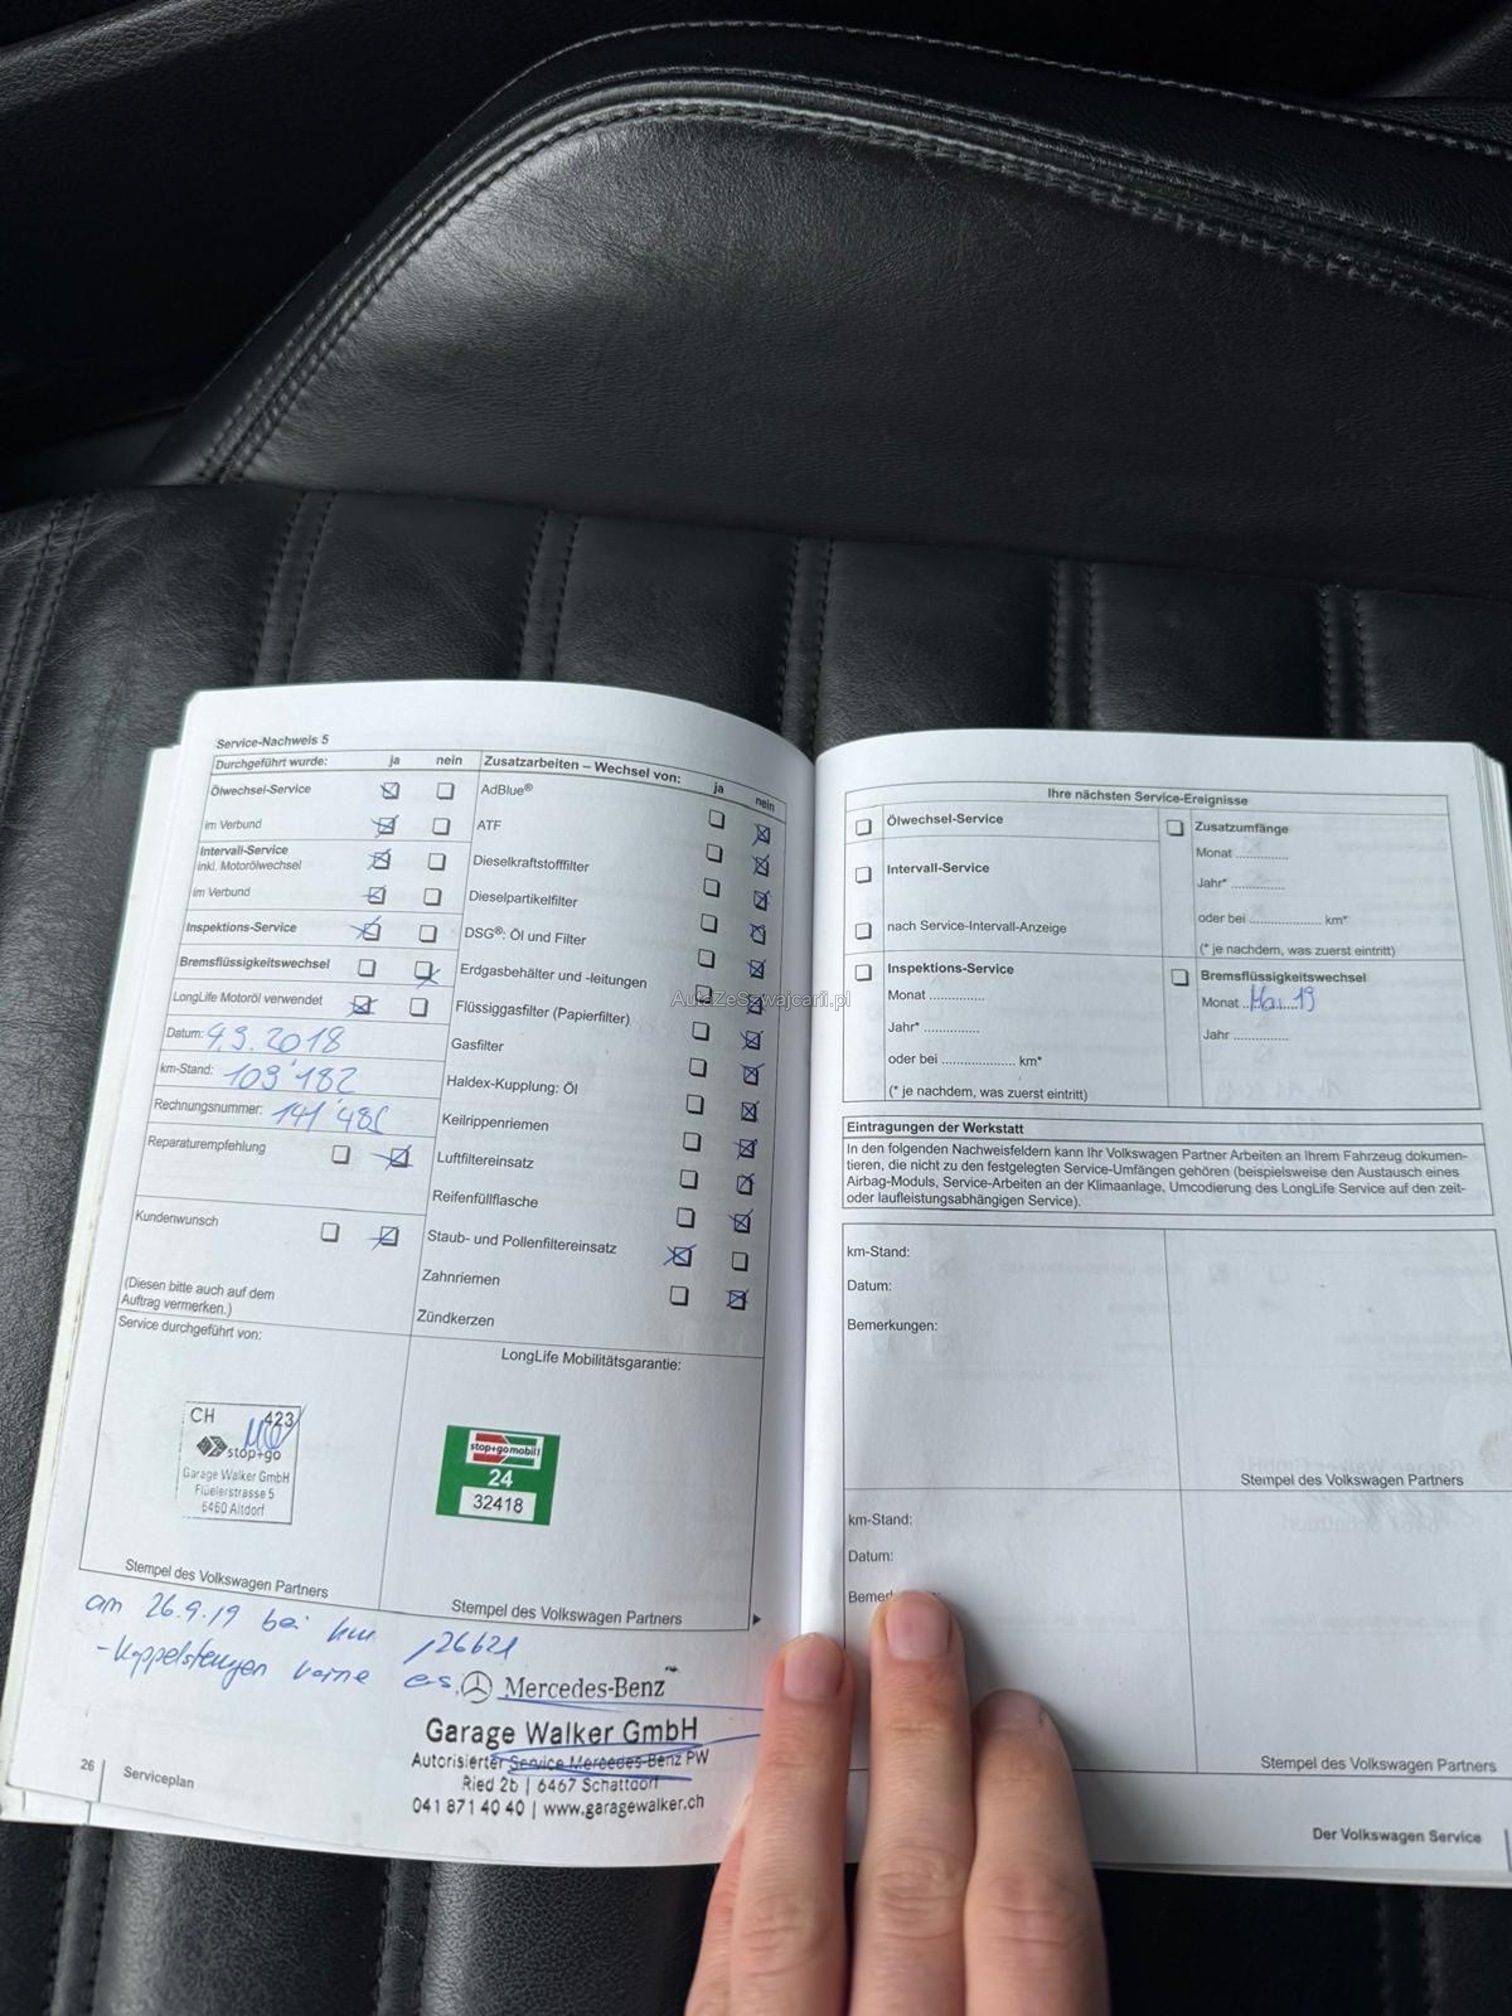 Service-Nachweis 5
Durchgeführt wurde: ja nein
Ölwechsel-Service
im Verbund
Intervall-Service
inkl. Motorölwechsel
im Verbund
Inspektions-Service
Bremsflüssigkeitswechsel
LongLife Motoröl verwendet
Datum: 4.9.2018
km-Stand: 109'182
Rechnungsnummer:
Reparaturempfehlung
Kundenwunsch
(Diesen bitte auch auf dem
Auftrag vermerken.)
Service durchgeführt von:
CH 423
stop+go
Garage Walker GmbH
Flüelerstrasse 5
6460 Altdorf
Stempel des Volkswagen Partners
Zusatzarbeiten – Wechsel von: ja nein
AdBlue®
ATF
Dieselkraftstofffilter
Dieselpartikelfilter
DSG®: Öl und Filter
Erdgasbehälter und -leitungen
Flüssiggasfilter (Papierfilter)
Gasfilter
Haldex-Kupplung: Öl
Keilrippenriemen
Luftfiltereinsatz
Reifenfüllflasche
Staub- und Pollenfiltereinsatz
Zahnriemen
Zündkerzen
LongLife Mobilitätsgarantie:
stop+go mobil!
24
32418
Stempel des Volkswagen Partners
am 26.9.19 bei km 126621
-Koppelstangen vorne ers.
Mercedes-Benz
Garage Walker GmbH
Autorisierter Service Mercedes-Benz PW
Ried 2b | 6467 Schattdorf
041 871 40 40 | www.garagewalker.ch
26 Serviceplan
Ihre nächsten Service-Ereignisse
Ölwechsel-Service
Intervall-Service
nach Service-Intervall-Anzeige
Zusatzumfänge
Monat ..............
Jahr* ..............
oder bei .................... km*
(* je nachdem, was zuerst eintritt)
Inspektions-Service
Monat ..............
Jahr* ..............
oder bei .................... km*
(* je nachdem, was zuerst eintritt)
Bremsflüssigkeitswechsel
Monat 19
Jahr ..............
Eintragungen der Werkstatt
In den folgenden Nachweisfeldern kann Ihr Volkswagen Partner Arbeiten an Ihrem Fahrzeug dokumen-
tieren, die nicht zu den festgelegten Service-Umfängen gehören (beispielsweise den Austausch eines
Airbag-Moduls, Service-Arbeiten an der Klimaanlage, Umcodierung des LongLife Service auf den zeit-
oder laufleistungsabhängigen Service).
km-Stand:
Datum:
Bemerkungen:
Stempel des Volkswagen Partners
km-Stand:
Datum:
Stempel des Volkswagen Partners
Der Volkswagen Service
AutaZeSzwajcarii.pl